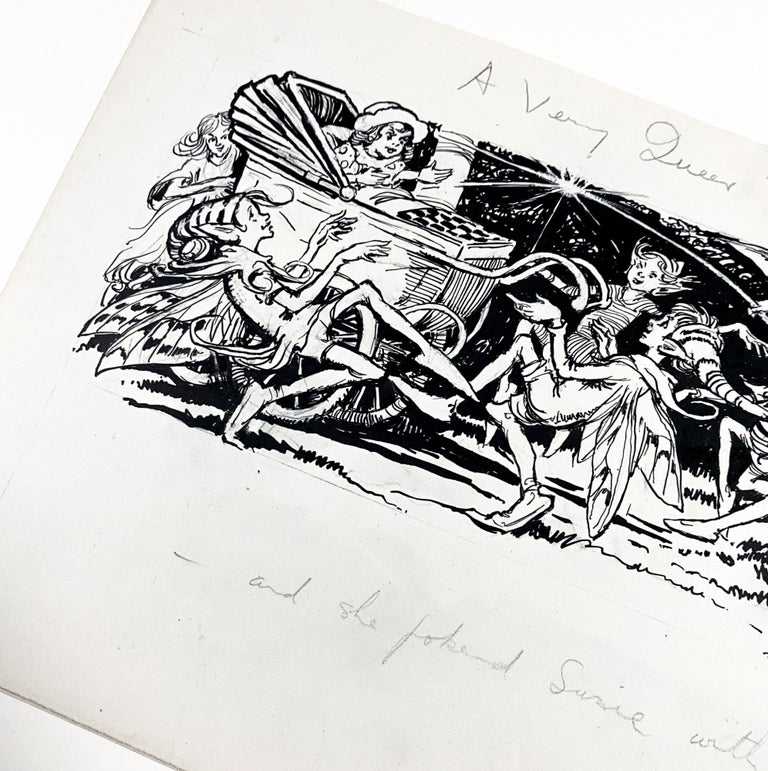 A Very Queer
— and she poked Susie with